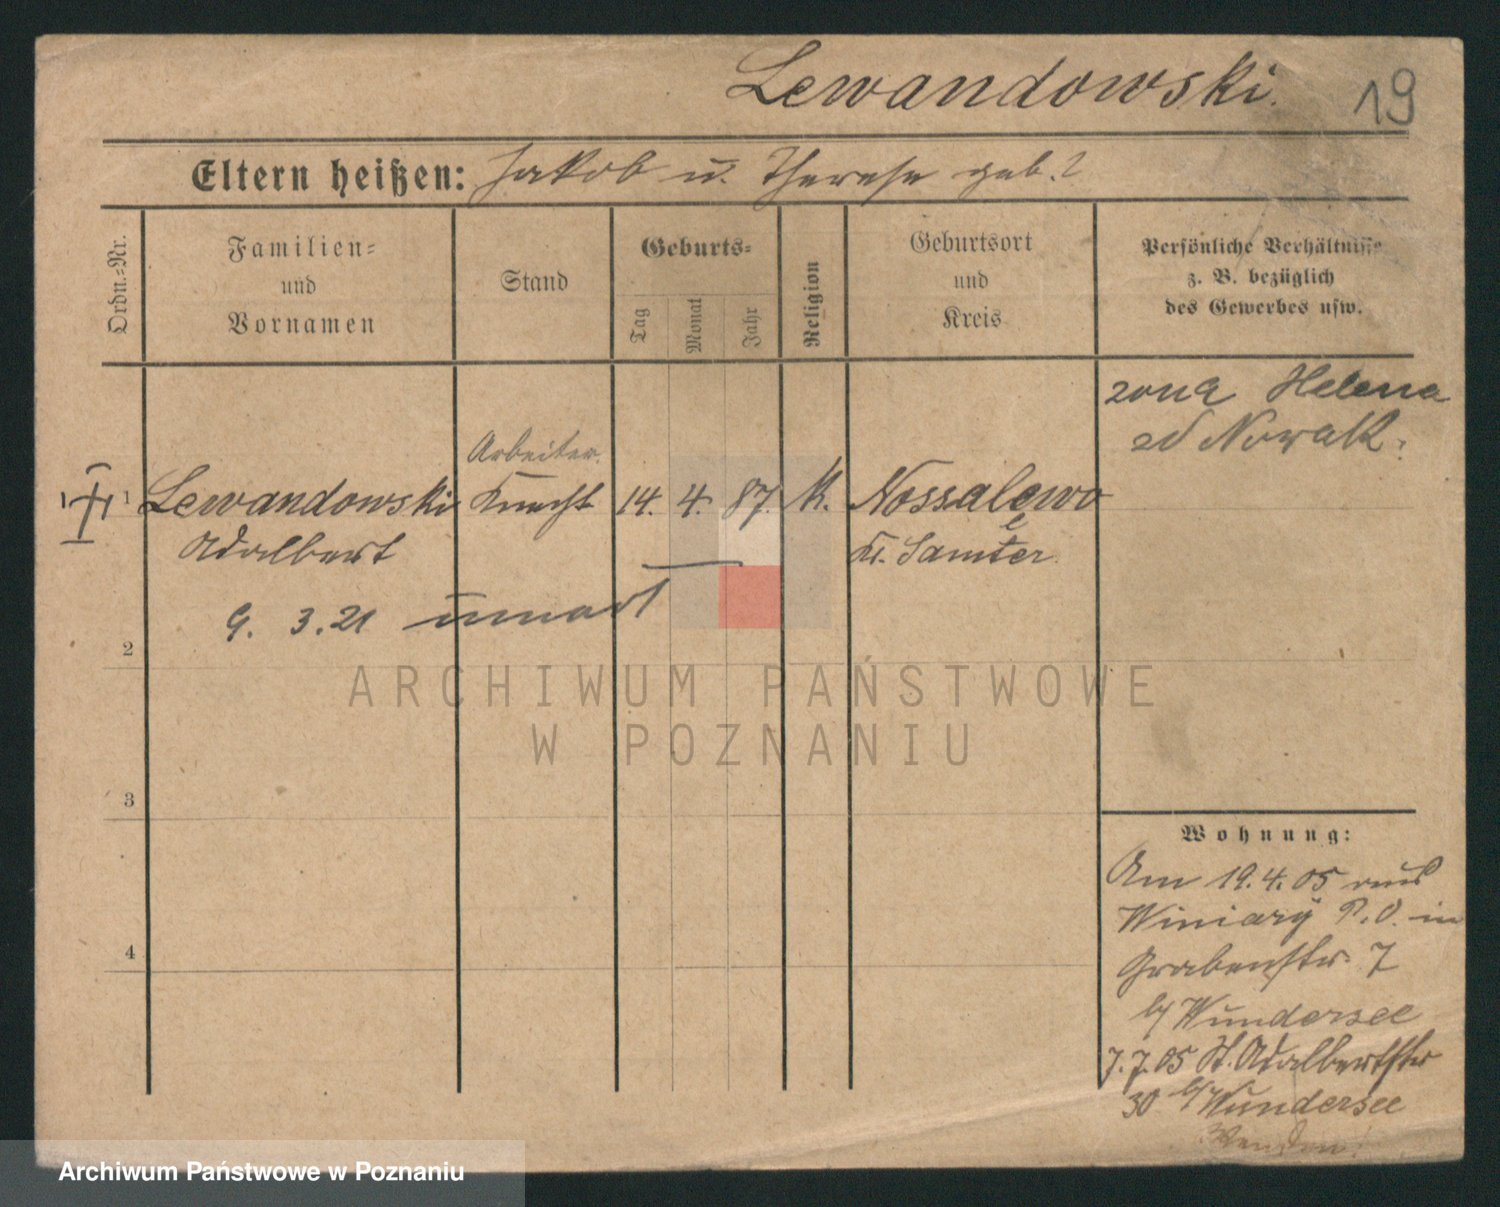 Lewandowski. 19
Eltern heißen: Jakob u. Therese geb. ?
Ordn.-Nr.
Familien-
und
Vornamen
Stand
Geburts-
Tag
Monat
Jahr
Religion
Geburtsort
und
Kreis
Persönliche Verhältnisse
z. B. bezüglich
des Gewerbes usw.
żona Helena
zd Nowak.
Arbeiter.
1 Lewandowski Knecht 14. 4. 87. K. Nossalewo
Adalbert Kr. Samter.
9. 3. 21
2
3
4
ARCHIWUM PAŃSTWOWE
W POZNANIU
Wohnung:
Am 19.4.05 aus
Winiary P. O. in
Grabenstr. 7
b/ Wundersee
7.7.05 St. Adalbertstr
30 b/ Wundersee
Wenden!
Archiwum Państwowe w Poznaniu